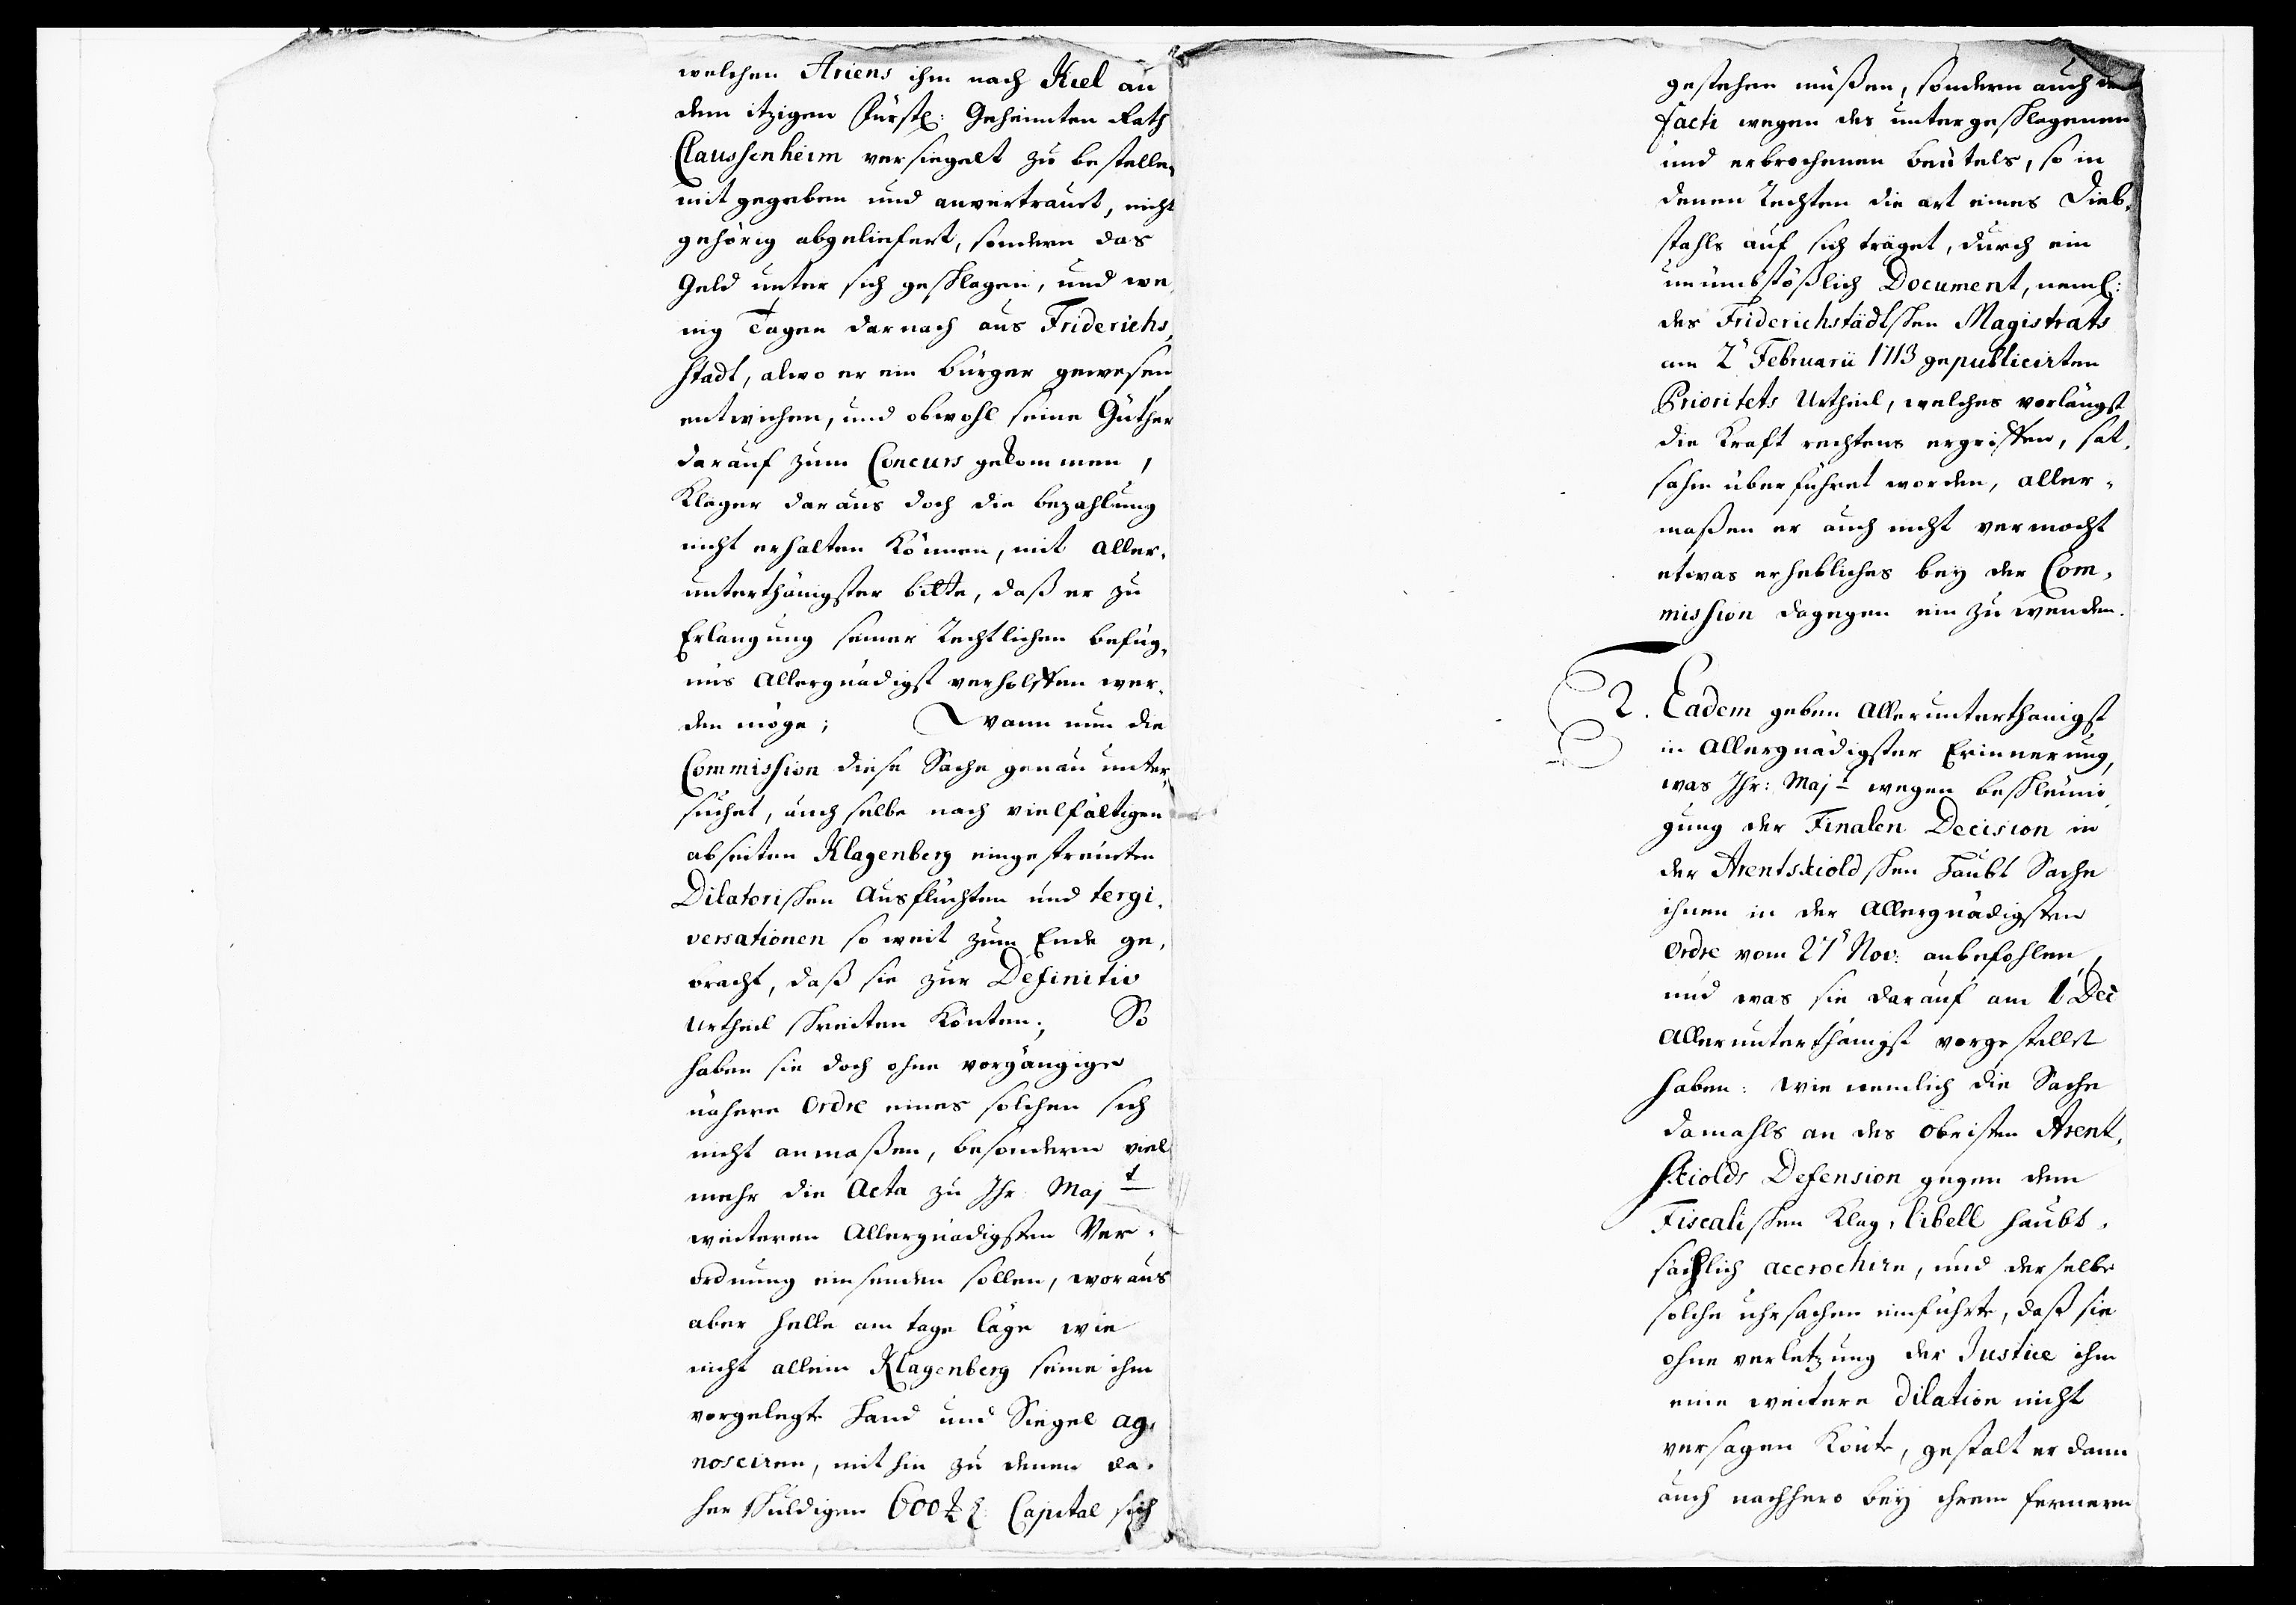 welchen Ariens ihm nach Kiel an
dem itzigen Fürstl: Geheimten Rath
Claussenheim versiegelt zu bestellen
mit gegeben und anvertraut, nicht
gehörig abgeliefert, sondern das
Geld unter sich geschlagen, und we,
nig Tagen darnach aus Friderichs,
Stadt, alwo er ein bürger gewesen
entwichen, und obwohl seine Güther
darauf zum Concurs gekommen,
Kläger daraus doch die bezahlung
nicht erhalten können, mit aller,
unterthänigster bitte, daß er zu
Erlangung seiner Rechtlichen befüg,
nis Allergnädigst verholffen wer,
den möge; Wann nun die
Commission diese Sache genau unter,
suchet, auch selbe nach vielfältigen
abseiten Klagenberg eingestreuten
Dilatorischen Ausflüchten und tergi,
versationen so weit zum Ende ge,
bracht, daß sie zur Definitiv
Urtheil schreiten könten; So
haben sie doch ohne vorgängige
nähere Ordre eines solchen sich
nicht anmaßen, besondern viel
mehr die Acta zu Ihr: Maj.t
weiteren Allergnädigsten Ver,
ordnung einsenden sollen, woraus
aber helle am tage läge wie
nicht allein Klagenberg seine ihm
vorgelegte Hand und Siegel ag,
nosciren, mithin zu denen da,
her schuldigen 600 Capital sich
gestehen müßen, sondern auch des
facti wegen des untergeschlagenen
und erbrochenen beutels, so in
denen Rechten die art eines Dieb,
stahls auf sich träget, durch ein
unümbstößlich Document, neml:
des Friderichstädtschen Magistrats
am 2' Februarii 1713 gepublicirten
Prioritets Urtheil, welches vorlängst
die Kraft rechtens ergriffen, sat,
sahm überführet worden, aller,
maßen er auch nicht vermocht
etwas erhebliches bey der Com,
mission dagegen ein zu wenden.
2. Eadem geben Allerunterthänigst
in Allergnädigster Erinnerung,
was Ihr: Maj.t wegen beschleuni,
gung der Finalen Decision in
der Arentskioldschen Haubt Sache
ihnen in der Allergnädigsten
Ordre vom 27' Nov: anbefohlen,
und was sie darauf am 1 Dec
Allerunterthänigst vorgestellet
haben: wie nemlich die Sache
damahls an des Obristen Arent,
skiolds Defension gegen dem
Fiscalischen Klag, libell haubt,
sächlich accrochire, und derselbe
solche uhrsachen einführte, daß sie
ohne verletzung der Justice ihm
eine weitere Dilation nicht
versagen könte, gestalt er dann
auch nachhero bey ihrem fernern